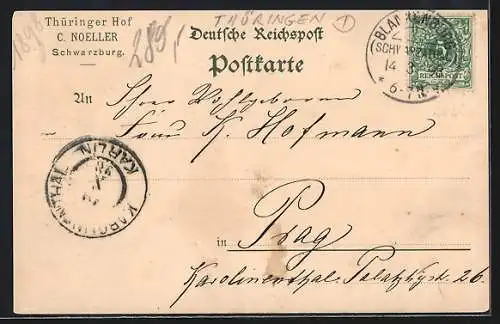 Thüringer Hof
C. NOELLER
Schwarzburg.
1898
289,
THÜRINGEN 1
Deutsche Reichspost
Postkarte
BLANKENBURG
SCHWARZATHAL
14 3
* 6-7 N *
5
REICHSPOST
An Ihre Wohlgeboren
Frau K. Hofmann
KAROLINENTHAL KARLIN
in Prag
Karolinenthal Palatzkystr 26.